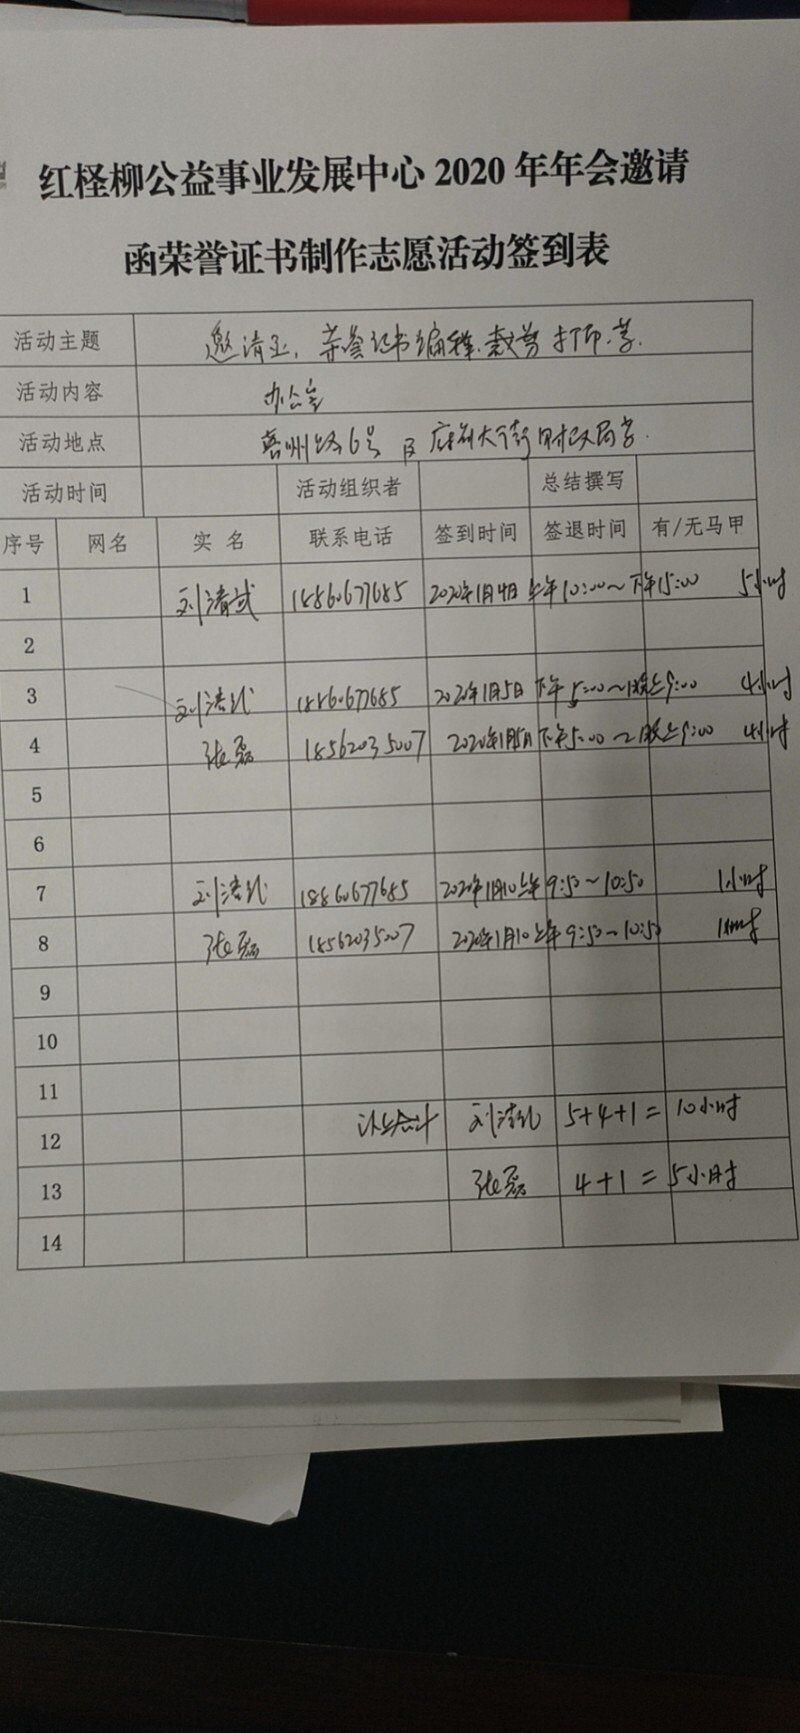 红柽柳公益事业发展中心 2020 年年会邀请
函荣誉证书制作志愿活动签到表
活动主题 邀请函、荣誉证书编释、裁剪 打印等.
活动内容 办公室
活动地点 路6号 及 府前大街财政局
活动时间 活动组织者 总结撰写
序号 网名 实 名 联系电话 签到时间 签退时间 有/无马甲
1 刘清 18860677685 2020年1月4日 上午10:00~下午15:00 5小时
2
3 刘清 18860677685 2020年1月5日 下午5:00~晚上9:00 4小时
4 张磊 18562035007 2020年1月5日 下午5:00~晚上9:00 4小时
5
6
7 刘清 18860677685 2020年1月10上午 9:50~10:50 1小时
8 张磊 18562035007 2020年1月10上午 9:50~10:50 1小时
9
10
11
12 以上合计 刘清 5+4+1= 10小时
13 张磊 4+1=5小时
14